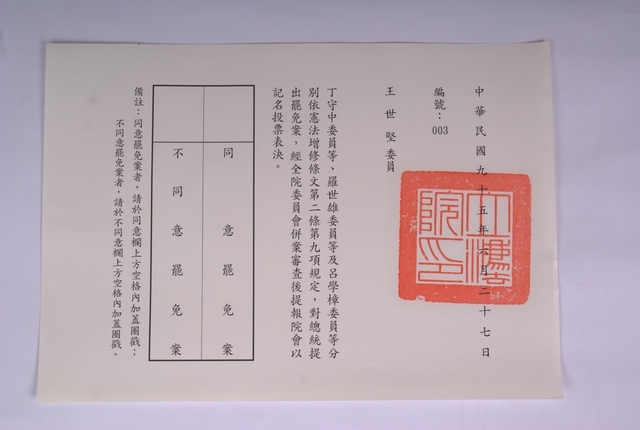 中華民國九十五年六月二十七日
編號：003
王世堅委員
丁守中委員等、羅世雄委員等及呂學樟委員等分
別依憲法增修條文第二條第九項規定，對總統提
出罷免案，經全院委員會併案審查後提報院會以
記名投票表決。
同意罷免案
不同意罷免案
備註：同意罷免案者，請於同意欄上方空格內加蓋圈戳；
不同意罷免案者，請於不同意欄上方空格內加蓋圈戳。
立法院印